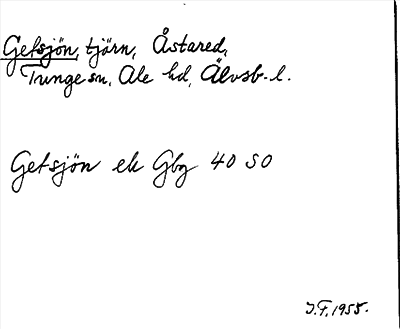 Getsjön, tjörn, Åstared,
Tunge sn, Ale hd, Älvsb. l.
Getsjön ek Gbg 40 SO
J.F. 1955.